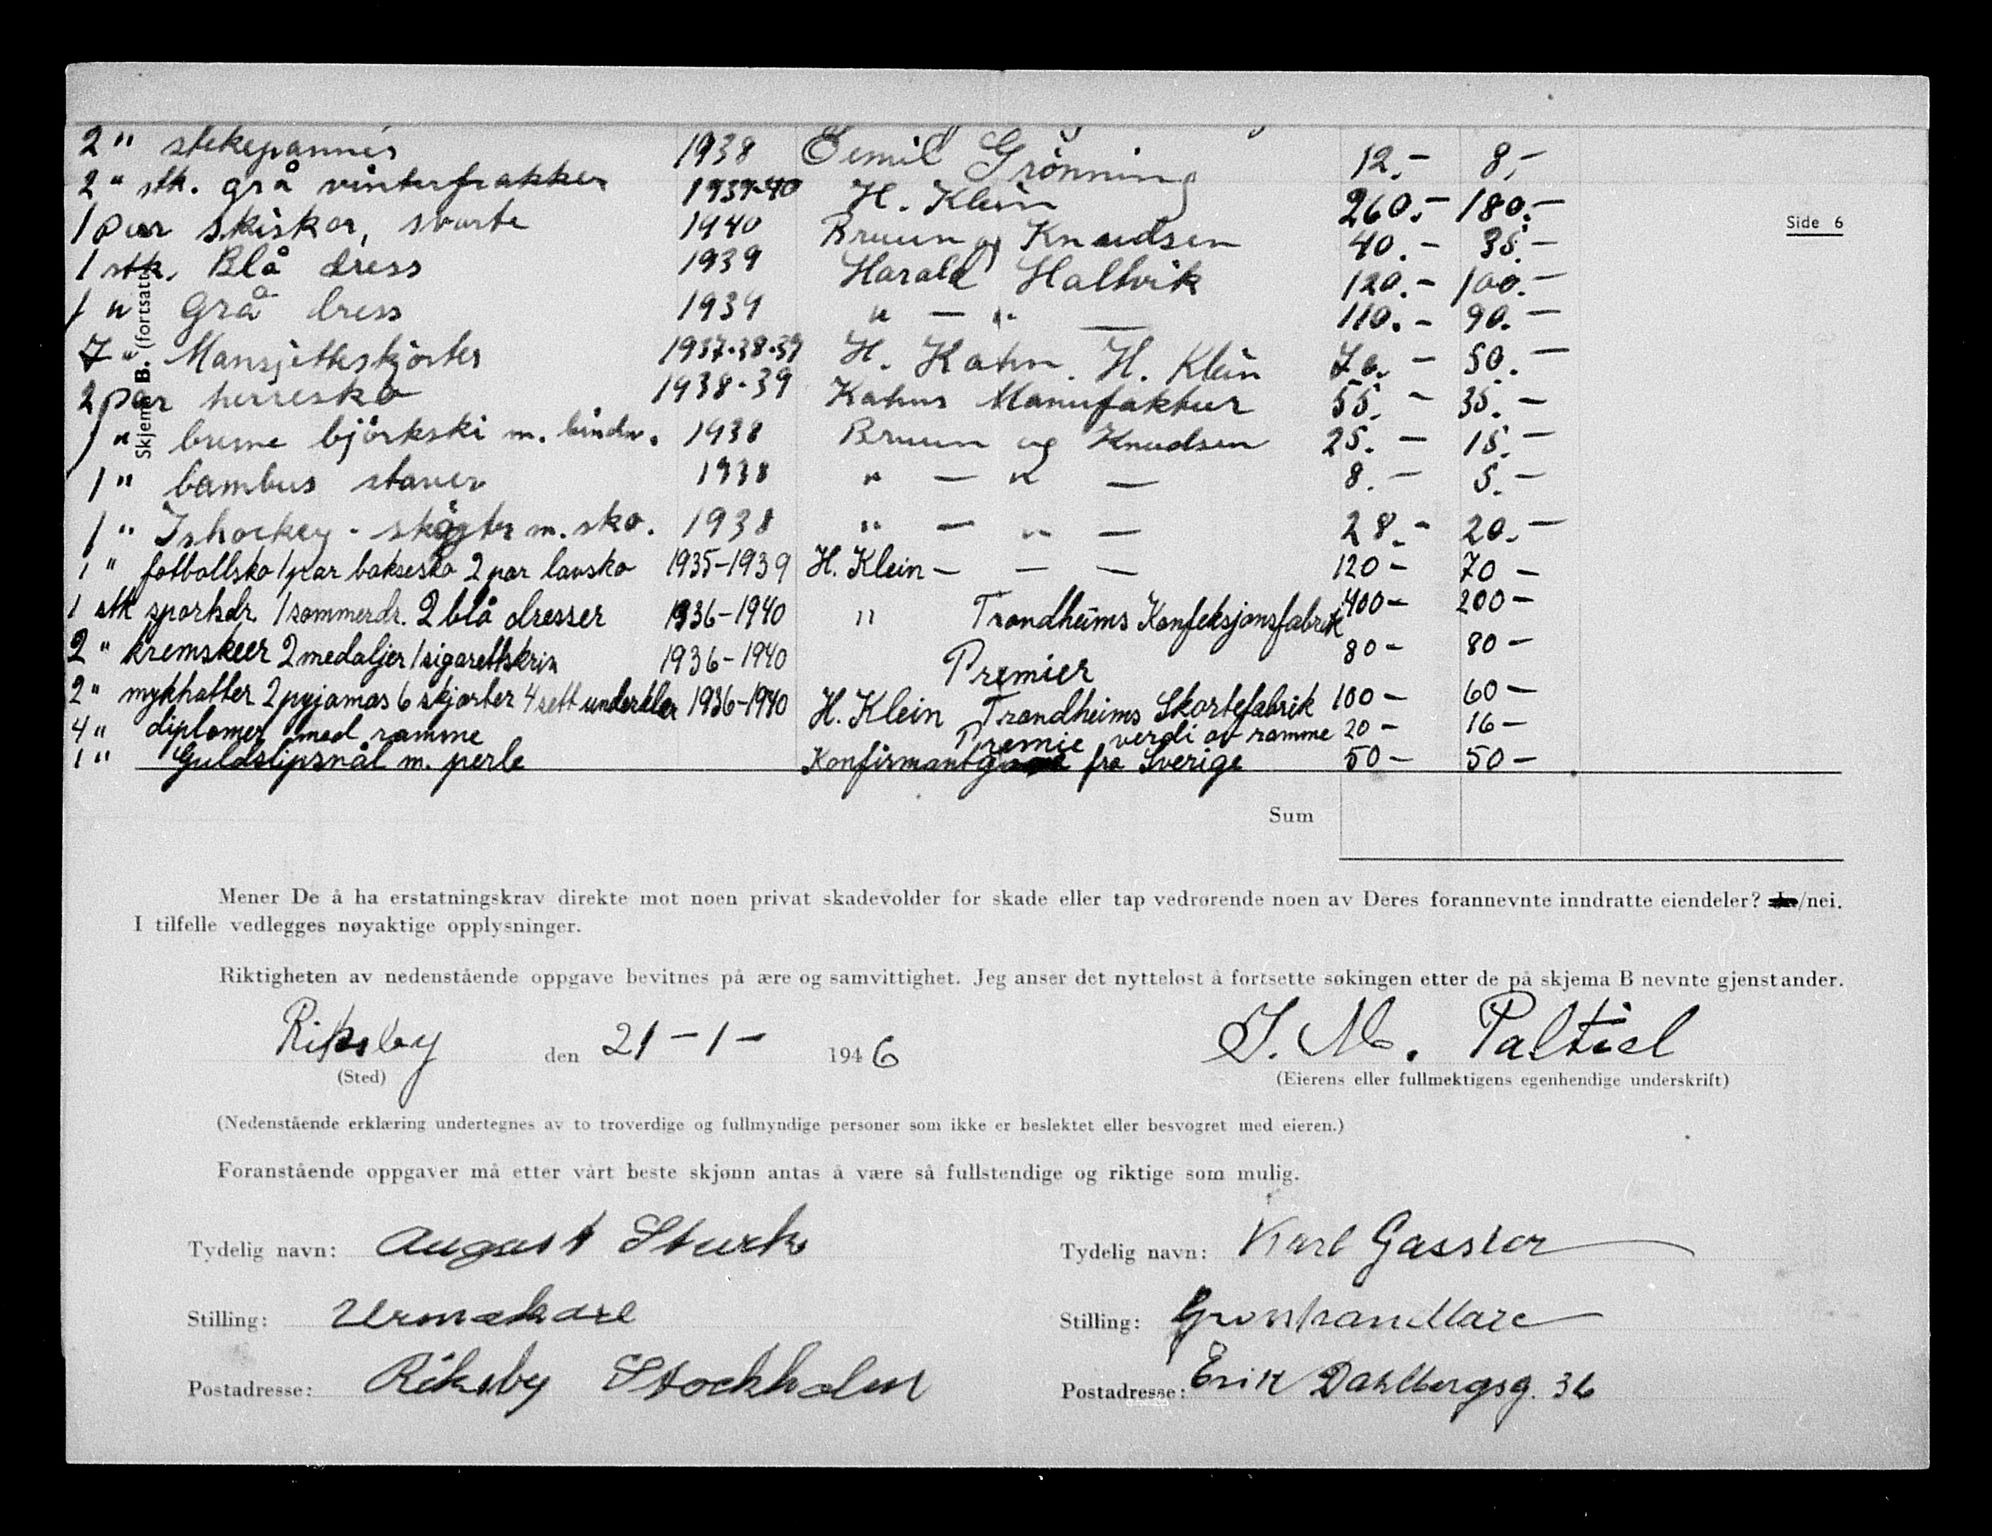 2 " stekepanner 1938 Eemil Grönning 12.- 8,-
2 " stk. grå vinterfrakker 1939-40 H. Klein 260.- 180.-
Side 6
1 par skiskor, svarte 1940 Bruun og Knudsen 40.- 35.-
1 stk. Blå dress 1939 Harald Haltvik 120.- 100.-
1 " Grå dress 1939 " - " - 110.- 90.-
Skjema B. (fortsatt
7 " Mansjetteskjorter 1937-38-39 H. Kahn. H. Klein 70.- 50.-
2 par herresko 1938-39 Kahns Manufaktur 55.- 35.-
1 " brune björkski m. bindn. 1938 Bruun og Knudsen 25.- 15.-
1 " bambus staver 1938 " - " - 8.- 5.-
1 " Ishockey - skøyter m. sko. 1938 " - " - 28.- 20.-
1 " fotballsko 1 par boksesko 2 par lavsko 1935-1939 H. Klein - - - 120- 70-
1 stk sportsdr. 1 sommerdr. 2 blå dresser 1936-1940 " Trondheims Konfeksjonsfabrik 400- 200-
2 " kremskeer 2 medaljer 1 sigarettskrin 1936-1940 Premier 80- 80-
2 " mykhatter 2 pyjamas 6 skjorter 4 sett underklær 1936-1940 H. Klein Trondheims Skortefabrik 100- 60-
4 " diplomer med ramme Premie verdi av ramme 20- 16-
1 " Guldslipsnål m. perle Konfirmantgave fra Sverige 50- 50-
Sum
Mener De å ha erstatningskrav direkte mot noen privat skadevolder for skade eller tap vedrørende noen av Deres forannevnte inndratte eiendeler? Ja/nei.
I tilfelle vedlegges nøyaktige opplysninger.
Riktigheten av nedenstående oppgave bevitnes på ære og samvittighet. Jeg anser det nytteløst å fortsette søkingen etter de på skjema B nevnte gjenstander.
Riksby den 21-1- 1946 J. M. Paltiel
(Sted) (Eierens eller fullmektigens egenhendige underskrift)
(Nedenstående erklæring undertegnes av to troverdige og fullmyndige personer som ikke er beslektet eller besvogret med eieren.)
Foranstående oppgaver må etter vårt beste skjønn antas å være så fullstendige og riktige som mulig.
Tydelig navn: August Sturk Tydelig navn: Karl Gassler
Stilling: Urmakare Stilling: Grosshandlare
Postadresse: Riksby Stockholm Postadresse: Erik Dahlbergsg. 36